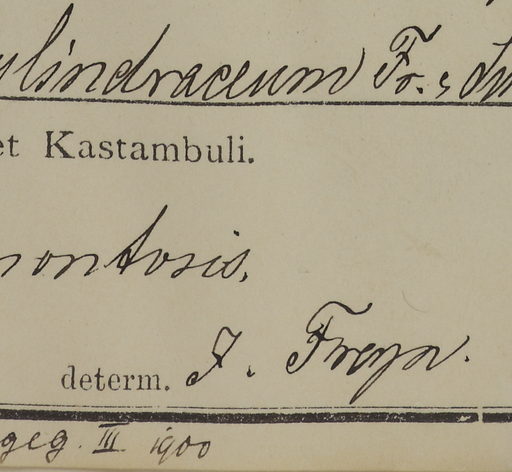 ylindraceum Fr., Sm
et Kastambuli.
montosis,
determ. J. Freyn.
geg. III 1900